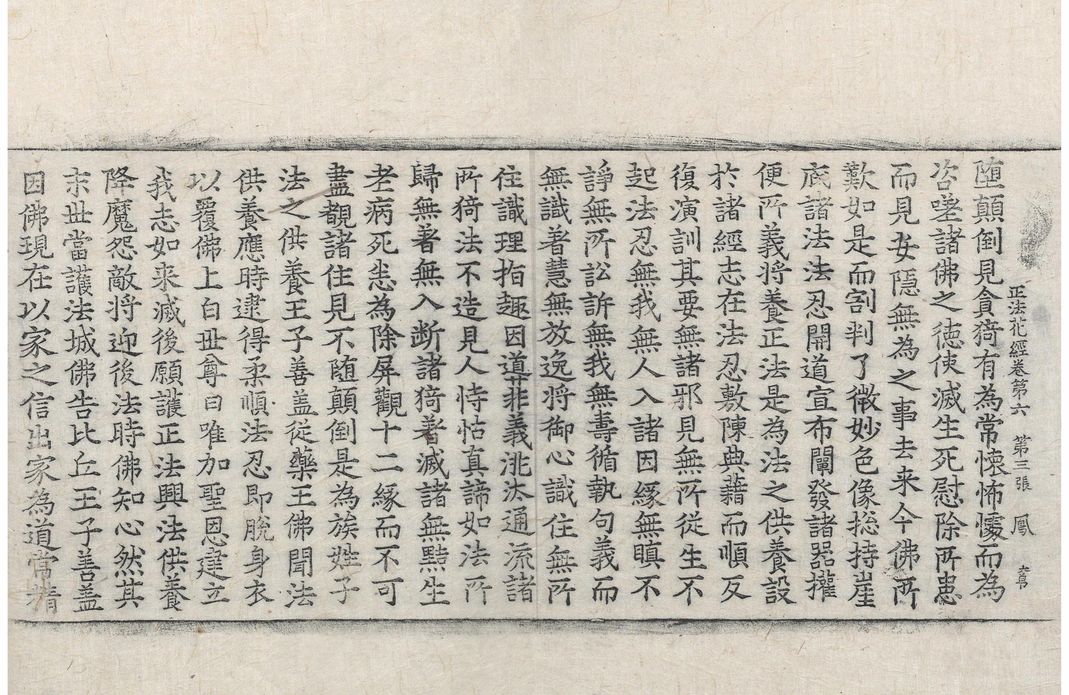 正法花經卷第六　第三張　鳳
堕顛倒見貪猗有為常懷怖懅而為
咨嗟諸佛之徳使滅生死慰除所患
而見安隱無為之事去来今佛所
歎如是而割判了微妙色像捴持崖
底諸法法忍開道宣布闡發諸器攉
便所義将養正法是為法之供養設
於諸經志在法忍敷陳典藉而順反
復演訓其要無諸邪見無所従生不
起法忍無我無人入諸因縁無瞋不
諍無所訟訴無我無壽循執句義而
無識著慧無放逸将御心識住無所
住識理指趣因道非義洮汰通流諸
所猗法不造見人恃怙真諦如法所
歸無著無入断諸猗著滅諸無黠生
老病死悉為除屏觀十二縁而不可
盡覩諸住見不随顛倒是為族姓子
法之供養王子善盖従藥王佛聞法
供養應時逮得柔順法忍即脫身衣
以覆佛上白世尊曰唯加聖恩建立
我志如来滅後願護正法興法供養
降魔怨敵将迎後法時佛知心然其
末世當護法城佛告比丘王子善盖
因佛現在以家之信出家為道常精